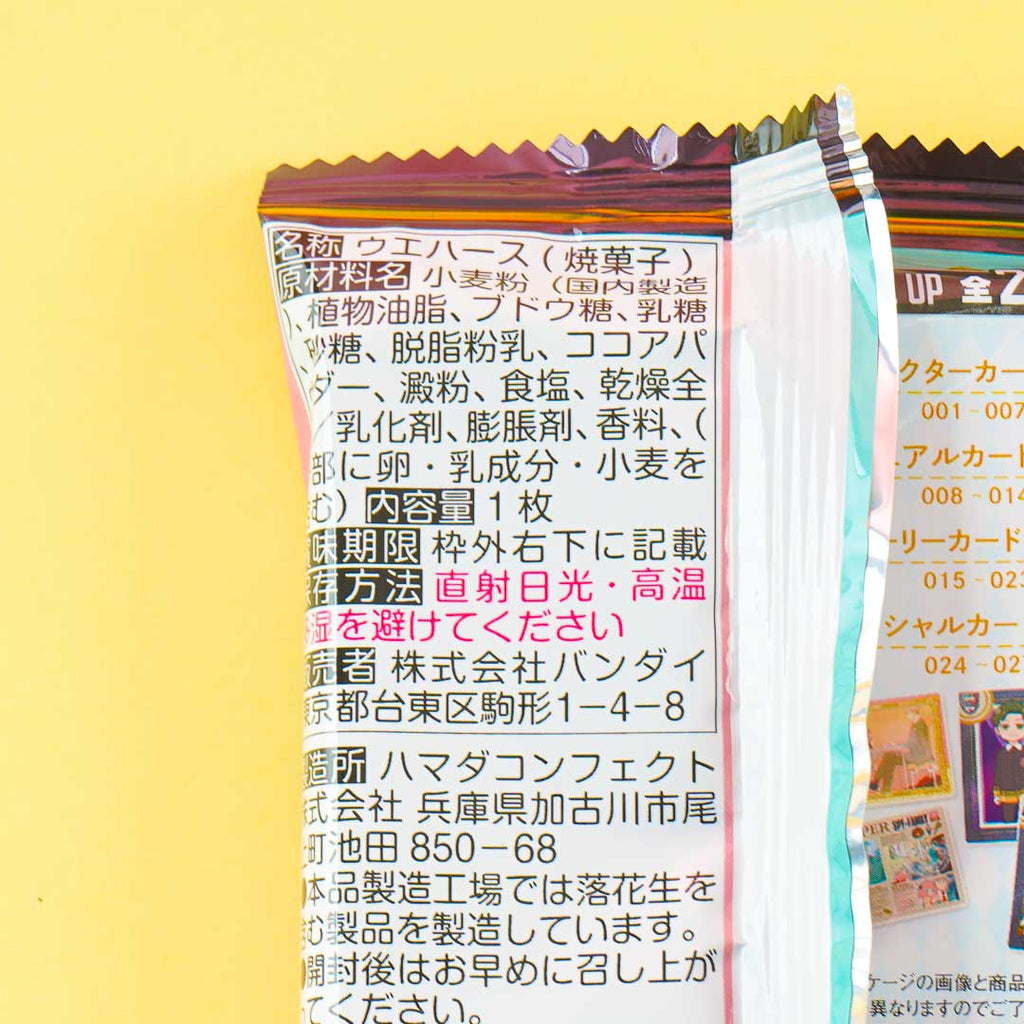 名称 ウエハース(焼菓子)
原材料名 小麦粉 (国内製造
)、植物油脂、ブドウ糖、乳糖
、砂糖、脱脂粉乳、ココアパ
ダー、澱粉、食塩、乾燥全
/乳化剤、膨脹剤、香料、(
部に卵・乳成分・小麦を
含む) 内容量 1枚
味期限 枠外右下に記載
存方法 直射日光・高温
湿を避けてください
売者 株式会社バンダイ
東京都台東区駒形1-4-8
製造所 ハマダコンフェクト
株式会社 兵庫県加古川市尾
町池田 850-68
●本品製造工場では落花生を
含む製品を製造しています。
●開封後はお早めに召し上が
ってください。
UP 全2
クターカー
001-007
アルカード
008-014
ーリーカード
015-023
シャルカー
024-02
ケージの画像と商品
異なりますのでご了